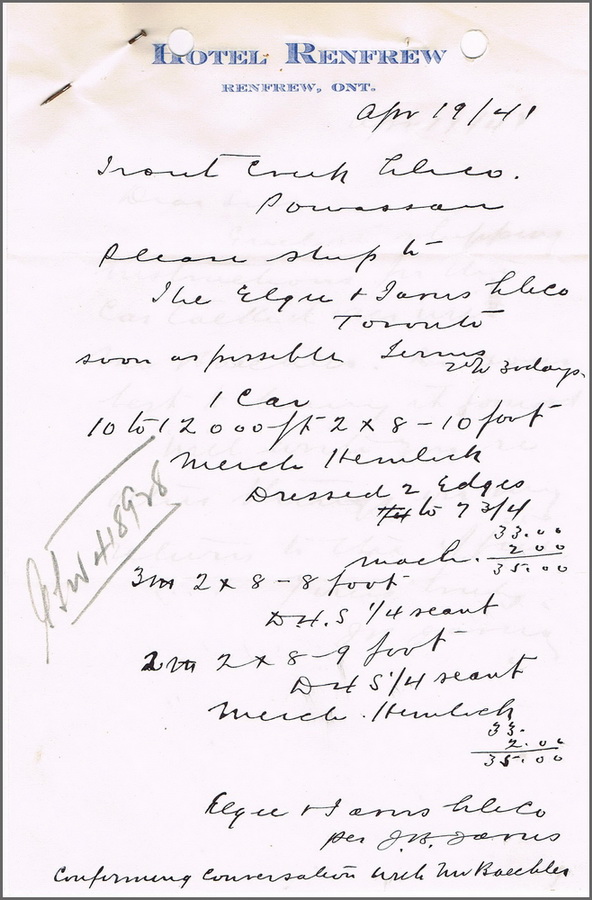 HOTEL RENFREW
RENFREW, ONT.
Apr 19/41
Trout Creek Lbr co.
Powassan
Please ship to
The Elgie & Jarvis Lbr Co
Toronto
soon as possible. Terms
2% 30 days.
1 Car
10 to 12 000 ft 2 x 8 - 10 foot
Merch Hemlock
Dressed 2 Edges
to 7 3/4
33.00
mach. 2 00
35.00
3m 2 x 8 - 8 foot
D4S 1/4 scant
2m 2 x 8 - 9 foot
D4S 1/4 scant
Merch. Hemlock
33.
2.00
35.00
Elgie & Jarvis Lbr Co
per J.B. Jarvis
Confirming Conversation with Mr Baechler